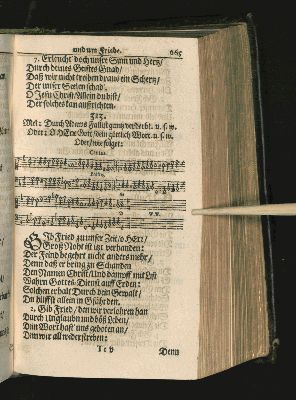 und um Friede. 665
7. Erleucht doch unser Sinn und Hertz/
Durch deines Geistes Gnad/
Daß wir nicht treiben draus ein Schertz/
Der unser Seelen schad'.
O Jesu Christ/ Allein du bist/
Der solches kan ausrichten.
Mel: Durch Adams Fall ist gantz verderbt. u. s. w.
Oder: O HErr Gott/ dein göttlich Wort. u. s. w.
Oder/ wie folget:
GIb Fried zu unser Zeit/ o HErr/
Groß Noht ist itzt verhanden:
Der Feind begehrt nicht anders mehr/
Denn daß er bring zu Schanden
Den Namen Christ/ Und dämpff mit List
Wahrn Gottes-Dienst auf Erden:
Solchen erhalt Durch dein Gewalt/
Du hilffst allein in Gfährden.
2. Gib Fried/ den wir verlohren han
Durch Unglaubn und böß Leben/
Dein Wort hast uns geboten an/
Dem wir all widerstreben:
Denn